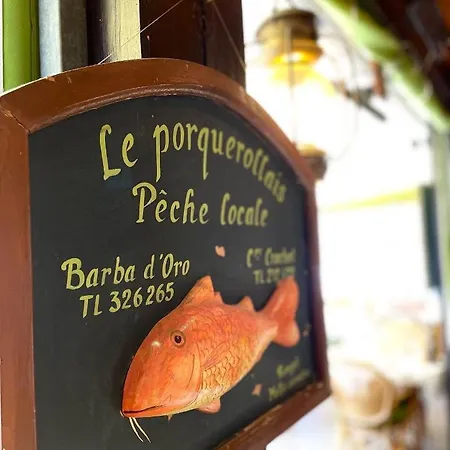 Le porquerollais
Pêche locale
Barba d'Oro
TL 326265
TL